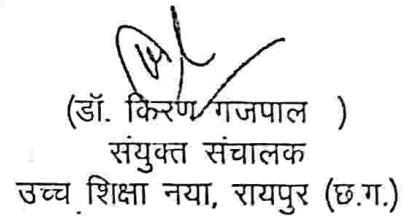 (डॉ. किरण गजपाल )
संयुक्त संचालक
उच्च शिक्षा नया, रायपुर (छ.ग.)